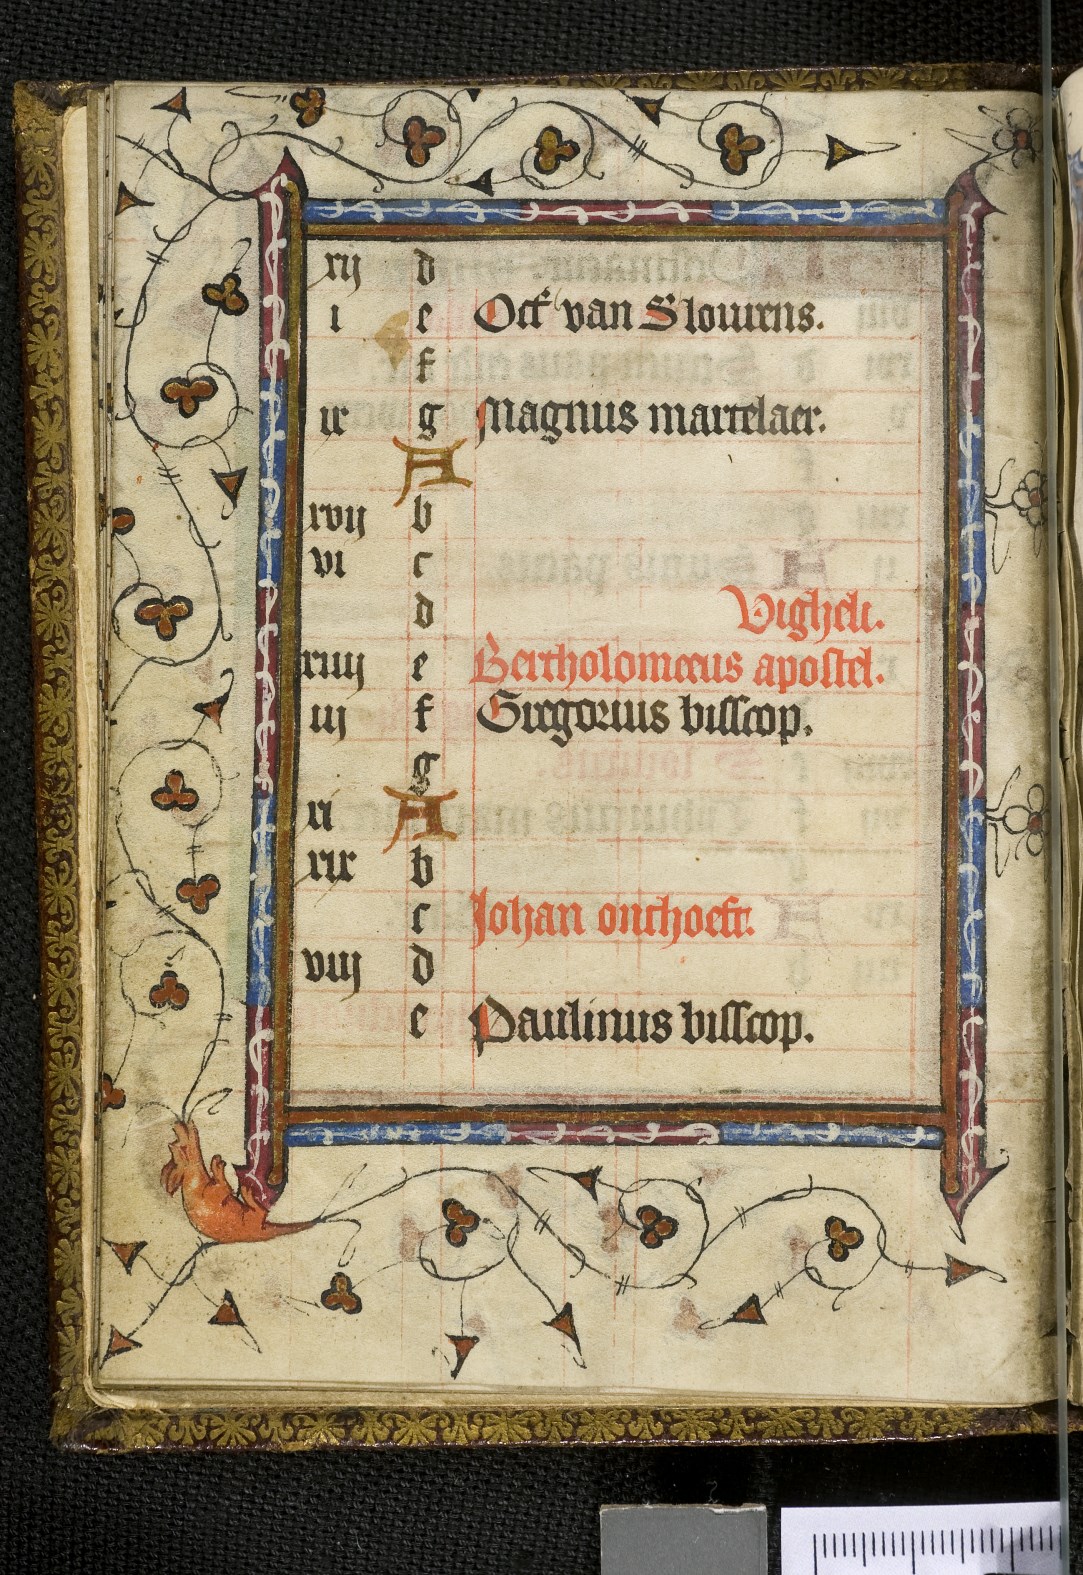 xij d
i e Oct' van S louwens.
f
ix g Magnus martelaer.
A
xvij b
vi c
d Vigheli.
xiiij e Bertholomeeus apostel.
iij f Gregorius bisscop.
g
xi A
xix b
c Johan onthoeft.
viij d
e Paulinus bisscop.